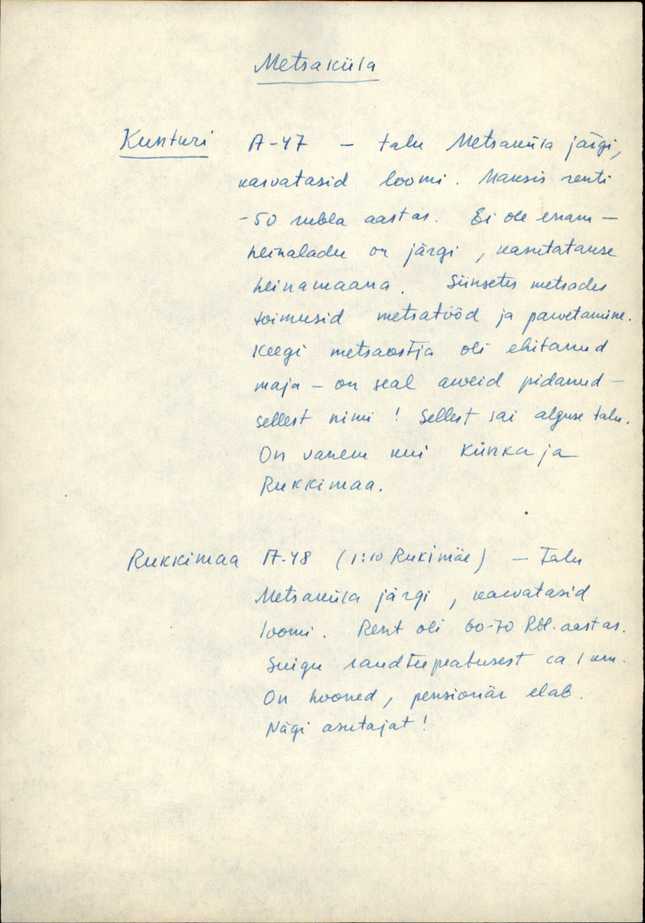 Metsaküla
Kunturi A-47 – talu Metsaküla järgi,
kasvatasid loomi. Maksis renti
-50 rubla aastas. Ei ole enam –
heinaladu on järgi, kasutatakse
heinamaana. Siinsetes metsades
toimusid metsatööd ja parvetamine.
Keegi metsaostja oli ehitanud
maja – on seal arveid pidanud –
sellest nimi! Sellest sai alguse talu.
On vanem kui Künka ja
Rukkimaa.
Rukkimaa A-48 (1:10 Rukimäe) – Talu
Metsaküla järgi, kasvatasid
loomi. Rent oli 60-70 Rbl. aastas.
Suigu raudteepeatusest ca 1 km.
On hooned, pensionär elab.
Nägi asutajat!